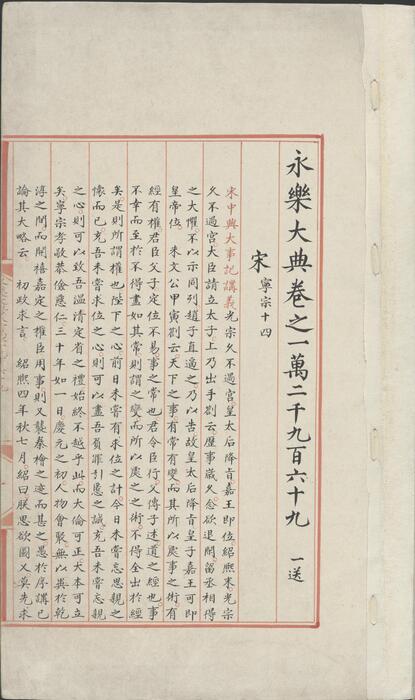 永樂大典卷之一萬二千九百六十九 一送
宋 寧宗十四
宋中興大事記講義光宗久不過宮皇太后降旨嘉王即位紹熙末光宗
久不過宮大臣請立太子上乃出手劄云歷事歲久念欲退閒留丞相得
之大懼不以示同列趙子直適之乃以告故皇太后降旨皇子嘉王可即
皇帝位 朱文公甲寅劄云天下之事有常有變而其所以處事之術有
經有權君臣父子定位不易事之常也君令臣行父傳子述道之經也事
不幸而至於不得盡如其常則謂之變而所以處之之術不得全出於經
矣是則所謂權也陛下之心前日未嘗有求位之計今日未嘗忘思親之
懷而已充吾未嘗求位之心則可以盡吾負罪引慝之誠充吾未嘗忘親
之心則可以致吾溫凊定省之禮始終不越乎此而大倫可正大本可立
矣寧宗孝敬恭儉應仁三十年如一日慶元之初人物會聚無以異於乾
淳之間而開禧嘉定之權臣用事則又襲秦檜之迹而甚之愚於序講已
論其大略云 初政求言 紹熙四年秋七月紹曰朕思欲圖乂莫先求